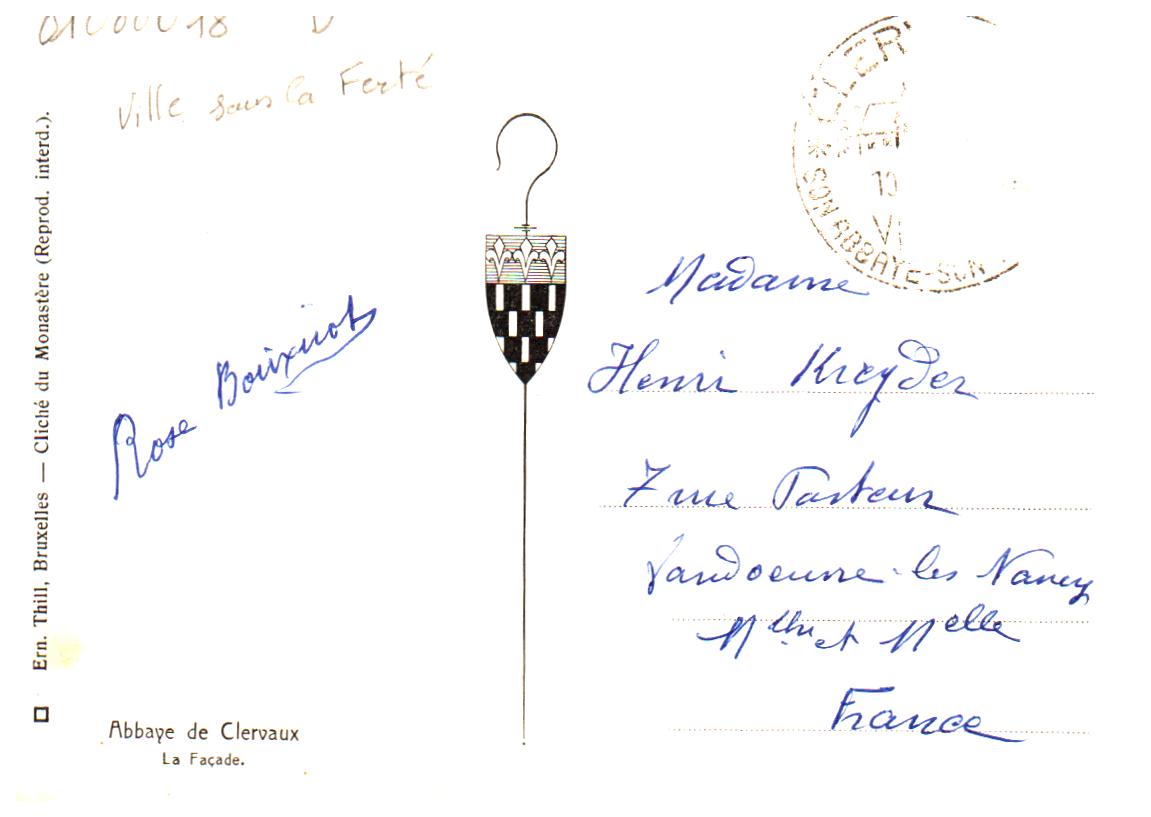 01000018 V
Ville sous la Ferté
CLER
10
VI
* SON ABBAYE-SON
Ern. Thill, Bruxelles — Cliché du Monastère (Reprod. interd.).
Rose Bouxinot
Abbaye de Clervaux
La Façade.
Madame
Henri Kreyder
7 rue Pasteur
Vandoeuvre-les Nancy
Mthe et Melle
France